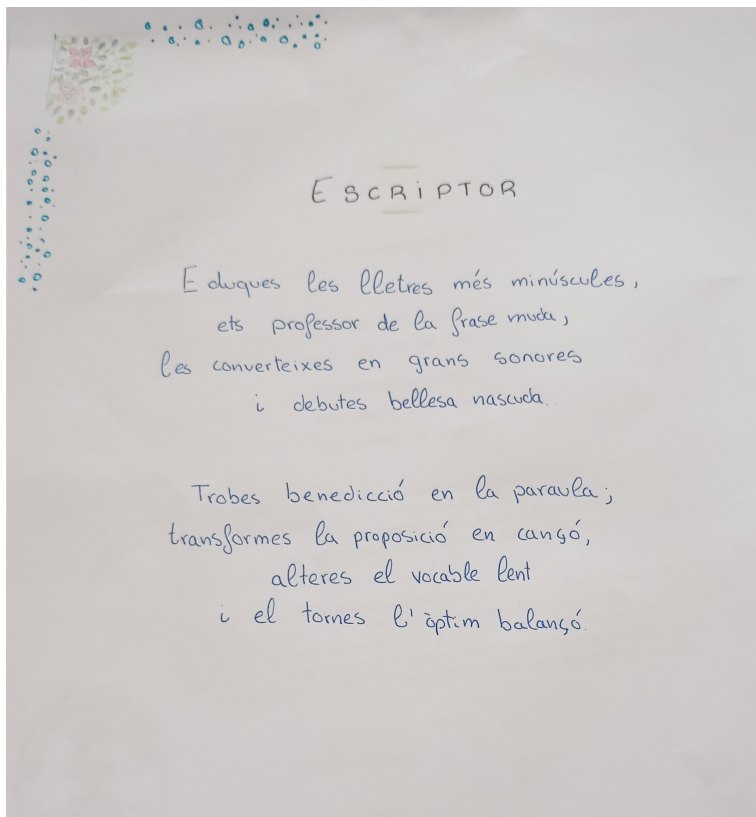 ESCRiPTOR
Eduques les lletres més minúscules,
ets professor de la frase muda,
les converteixes en grans sonores
i debutes bellesa nascuda.
Trobes benedicció en la paraula;
transformes la proposició en cançó,
alteres el vocable lent
i el tornes l'òptim balançó.